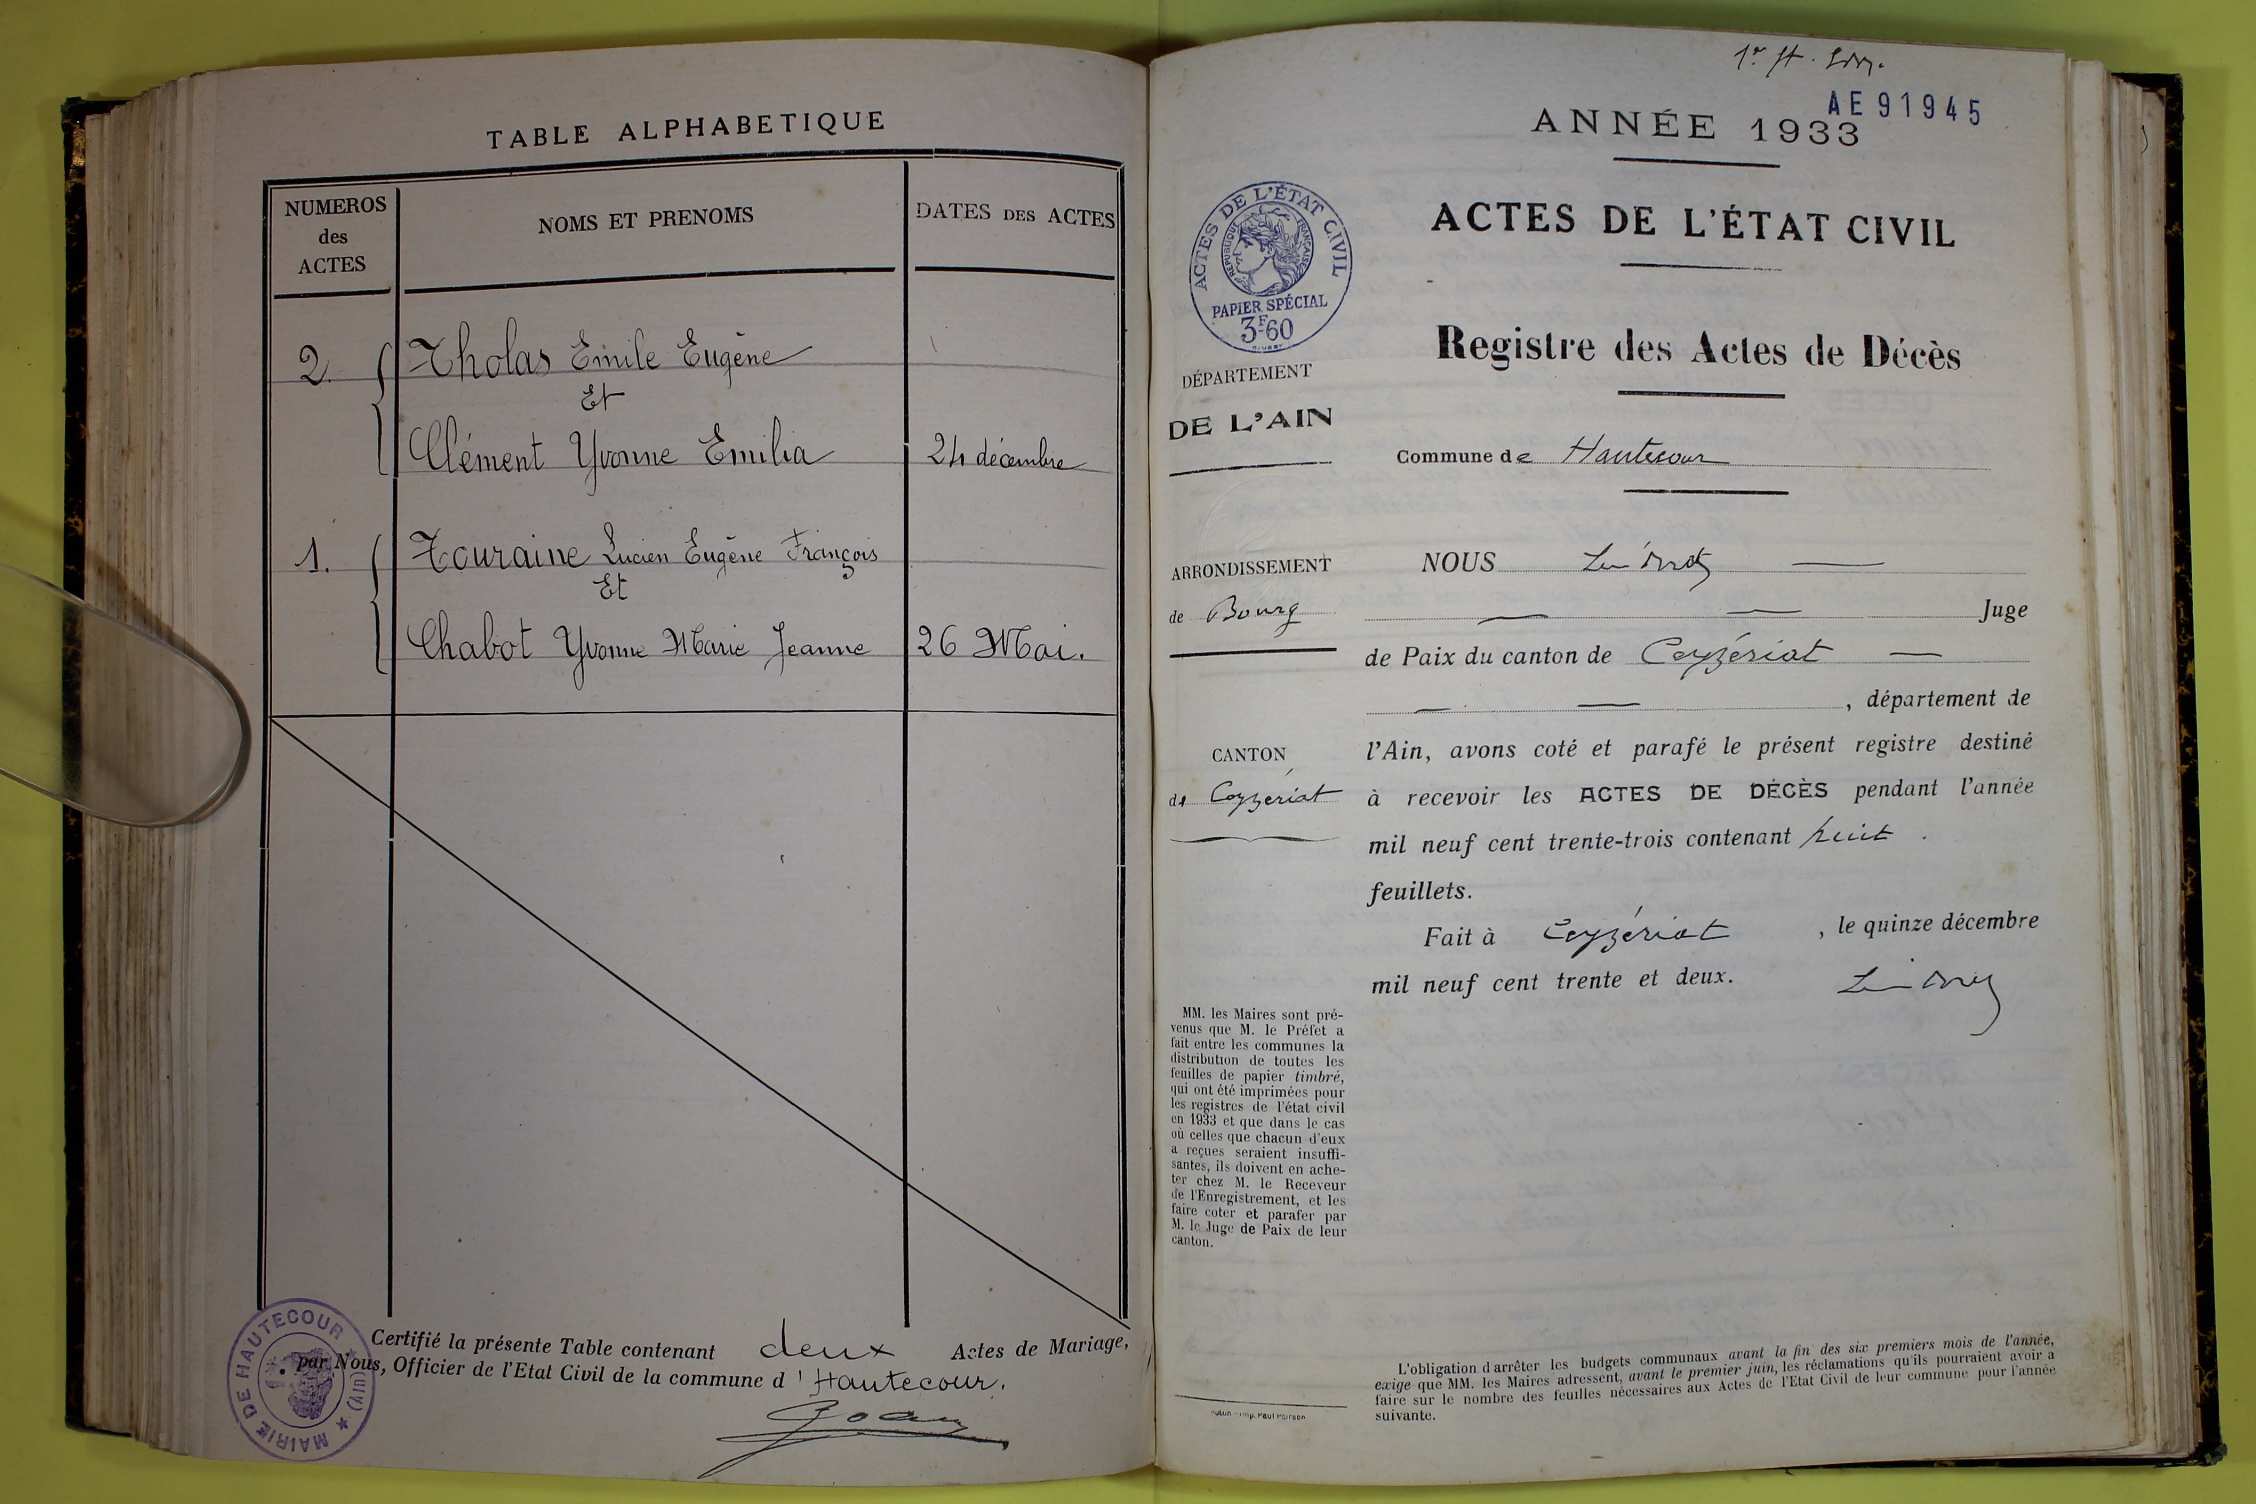 TABLE ALPHABETIQUE
NUMEROS
des
ACTES
NOMS ET PRENOMS
DATES DES ACTES
2. Tholas Emile Eugène
Et
Clément Yvonne Emilia 24 décembre
1. Touraine Lucien Eugène François
Et
Chabot Yvonne Marie Jeanne 26 Mai.
Certifié la présente Table contenant deux Actes de Mariage,
par Nous, Officier de l'Etat Civil de la commune d'Hautecour.
MAIRIE DE HAUTECOUR ★ (AIN) ★
AE 91945
ANNÉE 1933
ACTES DE L'ÉTAT CIVIL
Registre des Actes de Décès
Commune de Hautecour
ACTES DE L'ÉTAT CIVIL
REPUBLIQUE FRANÇAISE
PAPIER SPÉCIAL
3F60
DÉPARTEMENT
DE L'AIN
ARRONDISSEMENT
de Bourg
CANTON
de Ceyzériat
NOUS
Juge
de Paix du canton de Ceyzériat
, département de
l'Ain, avons coté et parafé le présent registre destiné
à recevoir les ACTES DE DÉCÈS pendant l'année
mil neuf cent trente-trois contenant huit
feuillets.
Fait à Ceyzériat , le quinze décembre
mil neuf cent trente et deux.
MM. les Maires sont pré-
venus que M. le Préfet a
fait entre les communes la
distribution de toutes les
feuilles de papier timbré,
qui ont été imprimées pour
les registres de l'état civil
en 1933 et que dans le cas
où celles que chacun d'eux
a reçues seraient insuffi-
santes, ils doivent en ache-
ter chez M. le Receveur
de l'Enregistrement, et les
faire coter et parafer par
M. le Juge de Paix de leur
canton.
L'obligation d'arrêter les budgets communaux avant la fin des six premiers mois de l'année,
exige que MM. les Maires adressent, avant le premier juin, les réclamations qu'ils pourraient avoir à
faire sur le nombre des feuilles nécessaires aux Actes de l'Etat Civil de leur commune pour l'année
suivante.